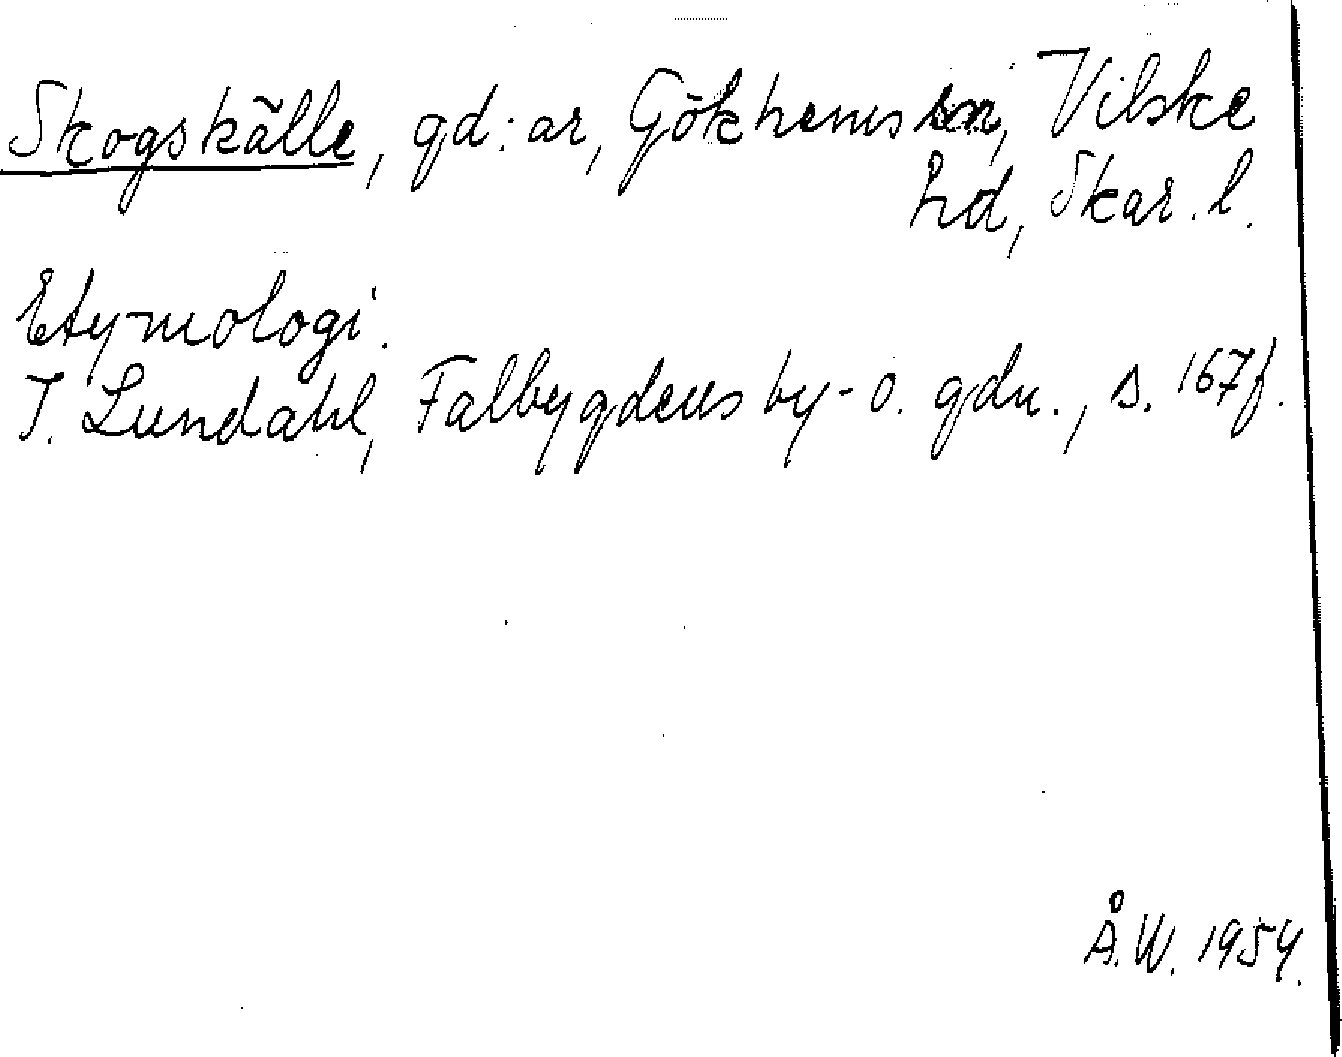 Skogskälle, gd:ar, Gökhems sn, Vilske
hd, Skar. l.
Etymologi.
I. Lundahl, Falbygdens by- o. gdn., s. 167f.
Å.W. 1954.